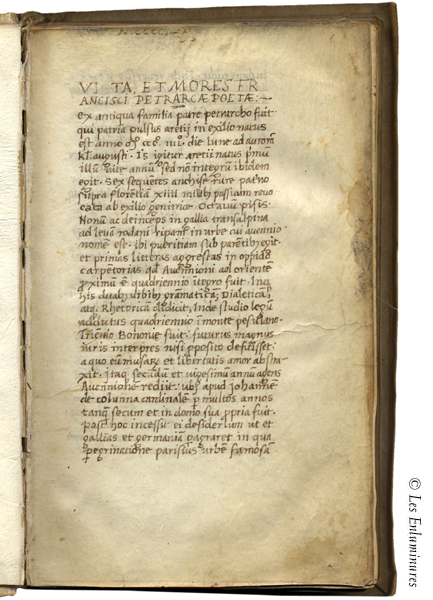 VITA, ET MORES FR
ANCISCI PETRARCÆ POETAE:
Ex antiqua familia patre petrarcho fuit
qui patria pulsus aretij in exilio natus
est anno
kł. augusti. Is igitur aretii natus
annū sed nō integrū ibidem
egit. Sex sequētes
supra florētiā xiiii passuum revo
cata ab exilio genitrice. Octauū pisis.
Nonū ac deinceps in gallia transalpina
ad leuā rodani ripam in urbe cui auenio
nomē est. ibi pueritiam sub parētib egit.
et primas litteras in oppido
carpetorias qđ Auennioni ad orientē
proximū ē quadriennio itegro fuit. Inq
his duab urbib grāmaticā, Dialeticā,
atq Rhetoricā didicit, Inde studio legū
quadriennio i monte pesulano.
Triēnio Bononie fuit: futurus magnus
iuris interpres nisi defuisset:
a quo eū et libertatis amor abstra
xit. Itaq secūdū et vigesimū annū agens
Auennione rediit: apud Johannē
de columna cardinalē p multos annos
tanq secum et in domo sua ppria fuit.
Post hoc incessu ei desideriū ut et
gallias et germaniā pagraret in qua
pegrinatione parisius urbē famosā
© Les Enluminures